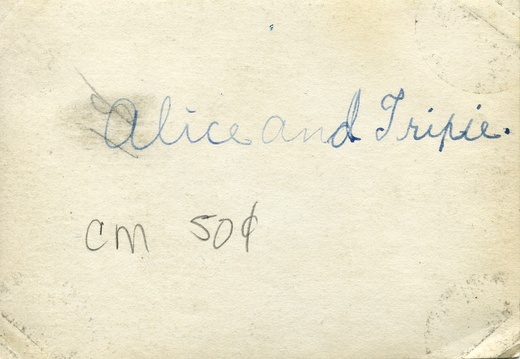 Alice and Tripie.
cm 50¢